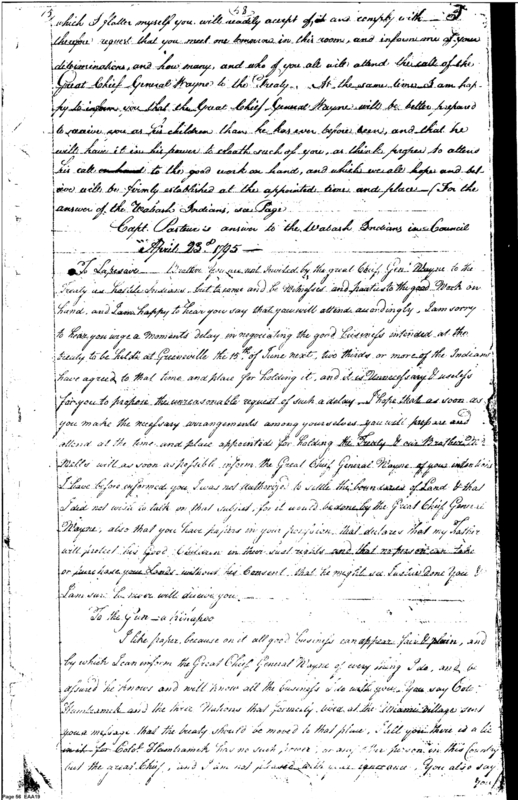 58
which I flatter myself you will readily accept of and comply with — I
therefore request that you meet me tomorrow in this room, and inform me of your
determinations, and how many, and who of you all will attend the call of the
Great Chief General Wayne to the Treaty. At the same time I am hap-
py to inform you that the Great Chief General Wayne will be better prepared
to receive you as his children than he has ever before been, and that he
will have it in his power to cloath such of you, as think proper to attend
his call on hand to the good work on hand, and which we all hope and bel-
ieve will be firmly established at the appointed time and place — (For the
answer of the Wabash Indians, see Page
Capt. Pasteur's answer to the Wabash Indians in Council
April 23d 1795 —
To Lapesare — Brother You are not invited by the great Chief Genl Wayne to the
Treaty as hostile Indians, but to come and be witnesses and parties to the good Work on
hand, and I am happy to hear you say that you will attend accordingly. I am sorry
to hear you urge a moments delay in negociating the good business intended at the
treaty to be held at Greeneville the 15th of June next, two thirds or more of the Indians
have agreed to that time and place for holding it, and it is Unnecessary & useless
for you to propose the unreasonable request of such a delay. I hope that as soon as
you make the necessary arrangements among yourselves you will prepare and
attend at the time and place appointed for holding the Treaty & our Brother Mr
Wells will as soon as possible inform the Great Chief General Wayne of your intentions
I have before informed you I was not Authorized to settle the boundaries of Land & that
I did not wish to talk on that subject, for it would be done by the Great Chief General
Wayne, also that you have papers in your possession that declares that my Father
will protect his Good Children in their just rights and that no person can take
or purchase your Lands without his Consent, that he might see Justice done You &
I am sure he never will deceive you
To the Gun — a Kickapoo
I like paper, because on it all good business can appear fair & plain, and
by which I can inform the Great Chief General Wayne of every thing I do, and be
assured he knows and will know all the business I do with you. You say Colo
Hamtramck and the three Nations that formerly lived at the Miami village sent
you a message that the treaty should be moved to that place, I tell you there is a lie
in it for Colol Hamtramck has no such power, or any other person in this Country
but the great Chief, and I am not pleased with your ignorance. You also say
you
Page 58 EAA19